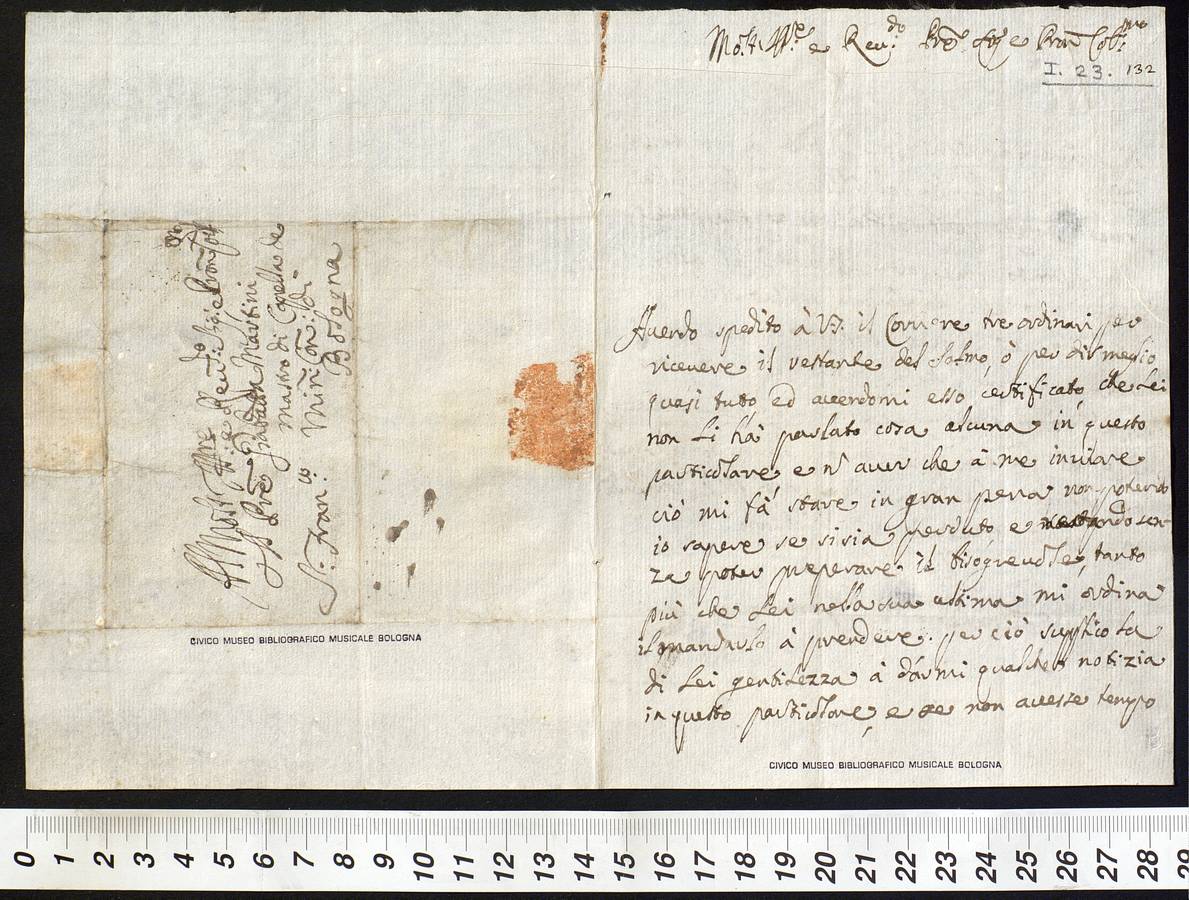 Al Molt Ill.re e Reu.do
Pre Gio: Batta Martini
Mastro di Capella de
S. Fran.co Min: Con: di
Bologna
CIVICO MUSEO BIBLIOGRAFICO MUSICALE BOLOGNA
Molt Ill.re e Reu.do Pre Sig e Pron Col.mo
I. 23. 132
Auendo spedito à il Corriere tre ordinari per
riceuere il restante del Salmo, ò per dir meglio
quasi tutto, ed auendomi esso certificato, che Lei
non Li hà parlato cosa alcuna in questo
particolare, e auer che à me inuiare
ciò mi fà stare in gran pena non potendo
io sapere se si sia perduto e restando sen-
za poter preparare il bisogneuole, tanto
più che Lei nella sua ultima mi ordina
il mandarlo à prendere. per ciò supplico La
di Lei gentilezza à darmi qualche notizia
in questo particolare, e se non auesse tempo
CIVICO MUSEO BIBLIOGRAFICO MUSICALE BOLOGNA
0 1 2 3 4 5 6 7 8 9 10 11 12 13 14 15 16 17 18 19 20 21 22 23 24 25 26 27 28 29